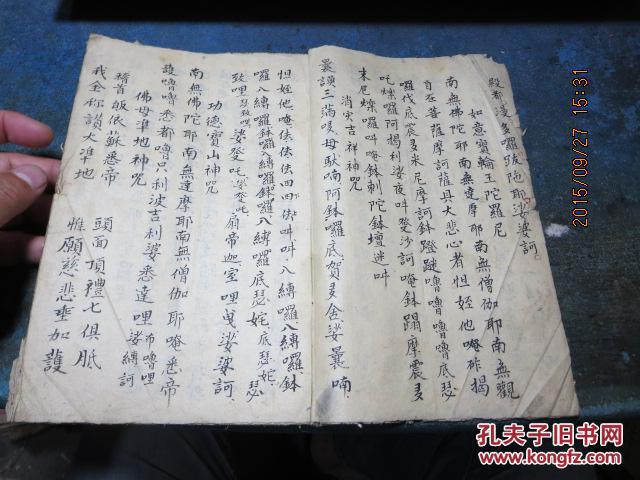 殿都漫多囉夜陁耶娑婆訶
如意寳輪王陀羅尼
南無佛陀耶南無達摩耶南無僧伽耶南無觀
自在菩薩摩訶薩具大悲心者怛姪他唵斫揭
囉伐底震多末尼摩訶鉢蹬謎嚕嚕嚕嚕底瑟
吒爍囉阿揭利娑夜吽癹沙訶唵鉢蹋摩震多
末尼爍囉吽唵鉢剌陀鉢亶迷吽
消灾吉祥神咒
曩謨三滿哆母馱喃阿鉢囉底賀多舍娑曩喃
怛姪他唵佉佉佉四佉四佉吽吽入縛囉入縛囉鉢
囉入縛囉鉢囉入縛囉底瑟姹底瑟姹瑟
致哩瑟致哩娑癹吒娑癹吒扇帝迦室哩曳娑婆訶
功德寳山神咒
南無佛陀耶南無達摩耶南無僧伽耶唵悉帝
護嚕嚕悉都嚕只利波吉利婆悉達哩布嚕哩娑縛訶
佛母準地神咒
稽首皈依蘇悉帝 頭面頂禮七俱胝
我今称讃大準地 惟願慈悲垂加護
2015/09/27 15:31
孔夫子旧书网
www.kongfz.com